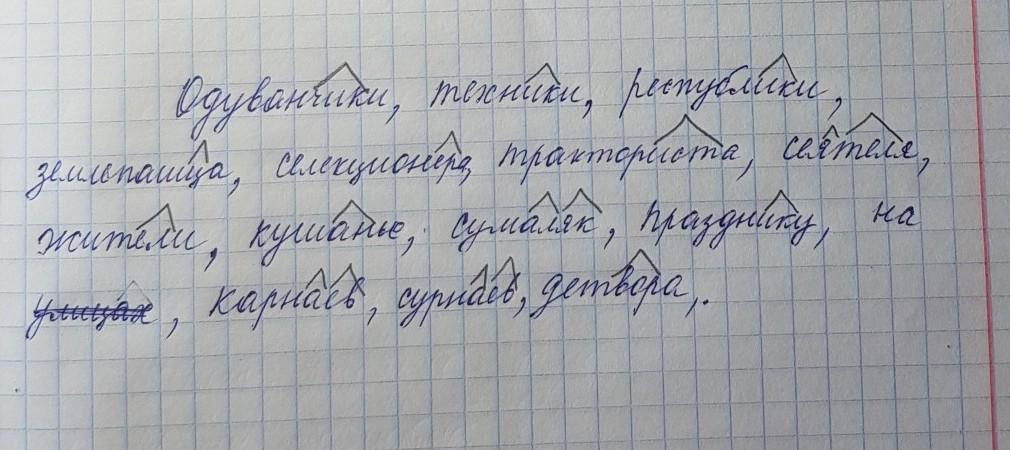 Одуванчики, техники, республики,
землепашца, селекционера, тракториста, сеятеля,
жители, кушанье, сумаляк, празднику, на
улицах, карнаев, сурнаев, детвора,.